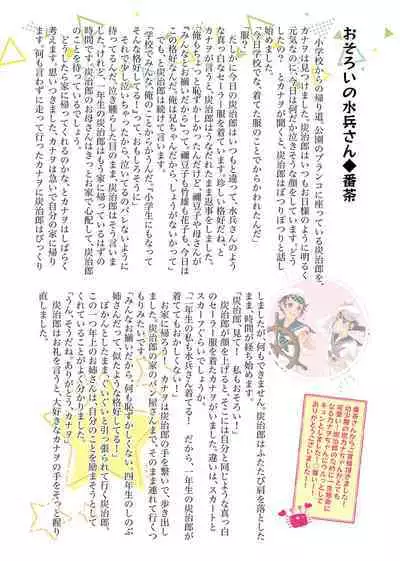 おそろいの水兵さん◆番茶
小学校からの帰り道、公園のブランコに座っている炭治郎を、
カナヲは見つけました。炭治郎はいつもお日様のように明るく
元気なのに、今日は何だか泣きそうな顔をしています。どう
したの?とカナヲが聞くと、炭治郎はぽつりぽつりと話し
始めました。
「今日学校でな、着てた服のことでからかわれたんだ」
「服?」
だしかに今日の炭治郎はいつもと違って、水兵さんのよう
な真っ白なセーラー服を着ています。珍しい格好だね、と
カナヲが言うと、炭治郎はうなだれたまま返事をしました。
「俺もちょっと恥ずかしかったんだけど、禰豆子や母さんが
『みんなとお揃いだから』って。禰豆子も竹雄も花子も、今日は
この格好なんだ。俺は兄ちゃんだから、しょうがないかって」
でも、と炭治郎は続けて言います。
「学校でみんな、俺のことからかうんだ。『小学生にもなって
そんな格好してる!』って、おもしろそうに」
それで少し泣いちゃったから、泣いてるのバレないように
待ってるんだ。泣き腫らした目のまま、炭治郎はそう言いま
した。けれど、一年生の炭治郎はもう家に帰っているはずの
時間です。炭治郎のお母さんはきっとお家で心配して、炭治郎
のことを待っているでしょう。
どうしたら家に帰ってくれるのかな、とカナヲはしばらく
考えます。思いつきました。カナヲは急いで自分の家に帰り
ます。何も言わずに走って行ったカナヲに炭治郎はびっくり
しましたが、何もできません。炭治郎はふたたび肩を落とした
まま、時間が経ち始めます。
「炭治郎、見て!　私もおそろい!」
炭治郎が顔を上げると、そこには自分と同じような真っ白
のセーラー服を着たカナヲがいました。違いは、スカートと
スカーフぐらいでしょうか。
「二年生の私も水兵さん着てる!　だから、一年生の炭治郎が
着ててもおかしくない!」
お家に帰ろう!　カナヲは炭治郎の手を繋いで、歩き出し
ました。炭治郎の家のパン屋さんまで、そのまま連れて行くつ
もりみたいです。
「みんなお揃いだから、何も恥ずかしくない。四年生のしのぶ
姉さんだって、似たような格好してる!」
ぐいぐいと引っ張られて行く炭治郎。
この一つ年上のお姉さんは、自分のことを励まそうとして
くれていることがよく分かりました。
「うん、そうだね。ありがとう、カナヲ」
炭治郎はお礼を言うと、大好きなカナヲの手をそっと握り
直しました。
番茶さんからご寄稿頂きました!
ありがとうございました!